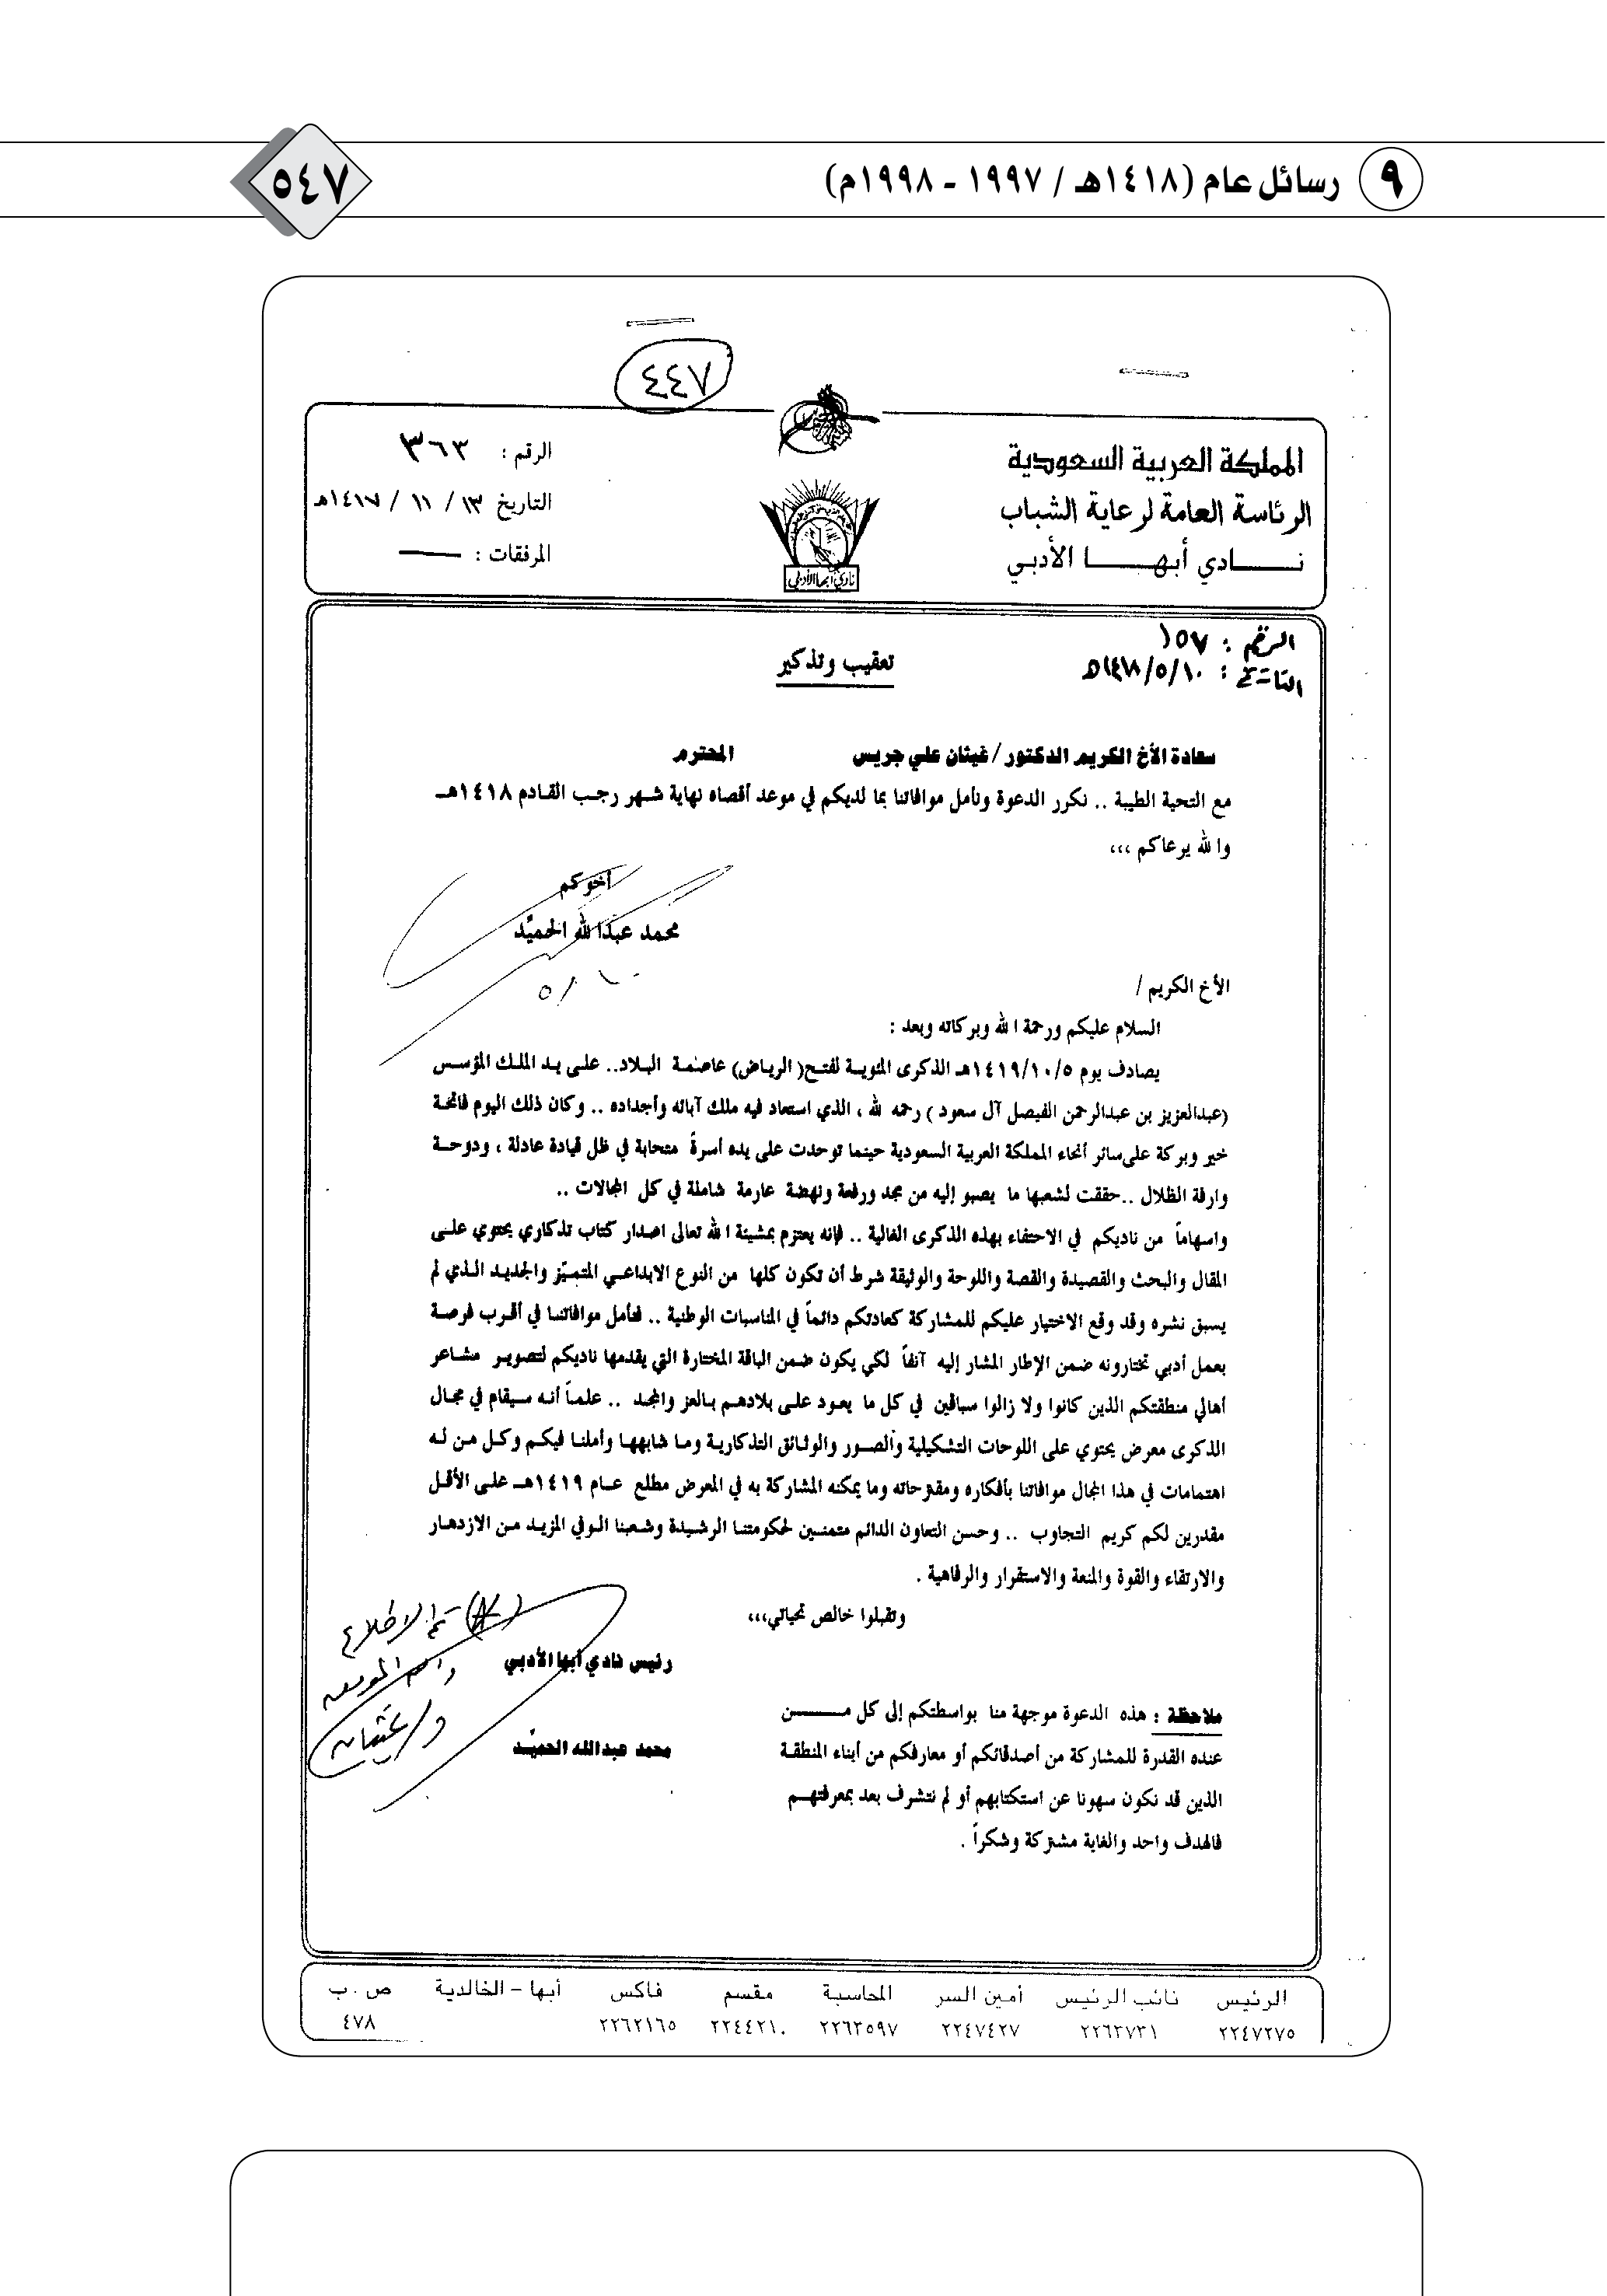 ٩ رسائل عام (١٤١٨هـ / ١٩٩٧ - ١٩٩٨م)
٥٤٧
٤٤٧
المملكة العربية السعودية
الرئاسة العامة لرعاية الشباب
نـــادي أبهـــا الأدبي
نادي أبها الأدبي
الرقم : ٣٦٣
التاريخ ١٣ / ١١ / ١٤١٧هـ
المرفقات : ــــ
الرقم : ١٥٧
التاريخ : ١٤١٨/٥/١٠هـ
تعقيب وتذكير
سعادة الأخ الكريم الدكتور / غيثان علي جريس المحترم
مع التحية الطيبة .. نكرر الدعوة ونأمل موافاتنا بما لديكم في موعد أقصاه نهاية شهر رجب القادم ١٤١٨هـ
والله يرعاكم ،،،
أخوكم
محمد عبدالله الحميّد
٥/١٠
الأخ الكريم /
السلام عليكم ورحمة الله وبركاته وبعد :
يصادف يوم ١٤١٩/١٠/٥هـ الذكرى المئوية لفتح( الرياض) عاصمة البلاد.. على يد الملك المؤسس
(عبدالعزيز بن عبدالرحمن الفيصل آل سعود ) رحمه لله ، الذي استعاد فيه ملك آبائه وأجداده .. وكان ذلك اليوم فاتحة
خير وبركة على سائر أنحاء المملكة العربية السعودية حينما توحدت على يده أسرةً متحابة في ظل قيادة عادلة ، ودوحة
وارفة الظلال ..حققت لشعبها ما يصبو إليه من مجد ورفعة ونهضة عارمة شاملة في كل المجالات ..
واسهاماً من ناديكم في الاحتفاء بهذه الذكرى الغالية .. فإنه يعتزم بمشيئة الله تعالى اصدار كتاب تذكاري يحتوي على
المقال والبحث والقصيدة والقصة واللوحة والوثيقة شرط أن تكون كلها من النوع الابداعي المتميّز والجديد الذي لم
يسبق نشره وقد وقع الاختيار عليكم للمشاركة كعادتكم دائماً في المناسبات الوطنية .. فنأمل موافاتنا في أقرب فرصة
بعمل أدبي تختارونه ضمن الإطار المشار إليه آنفاً لكي يكون ضمن الباقة المختارة التي يقدمها ناديكم لتصوير مشاعر
أهالي منطقتكم الذين كانوا ولا زالوا سباقين في كل ما يعود على بلادهم بالعز والمجد .. علماً أنه سيقام في مجال
الذكرى معرض يحتوي على اللوحات التشكيلية والصور والوثائق التذكارية وما شابهها وأملنا فيكم وكل من له
اهتمامات في هذا المجال موافاتنا بأفكاره ومقترحاته وما يمكنه المشاركة به في المعرض مطلع عام ١٤١٩هـ على الأقل
مقدرين لكم كريم التجاوب .. وحسن التعاون الدائم متمنين لحكومتنا الرشيدة وشعبنا الوفي المزيد من الازدهار
والارتقاء والقوة والمنعة والاستقرار والرفاهية .
وتقبلوا خالص تحياتي،،،
رئيس نادي أبها الأدبي
محمد عبدالله الحميّد
تم الاطلاع
د/ غيثان
ملاحظة : هذه الدعوة موجهة منا بواسطتكم إلى كل مـــن
عنده القدرة للمشاركة من أصدقائكم أو معارفكم من أبناء المنطقة
الذين قد نكون سهونا عن استكتابهم أو لم نتشرف بعد بمعرفتهم
فالهدف واحد والغاية مشتركة وشكراً .
الرئيس نائب الرئيس أمين السر المحاسبة مقسم فاكس أبها - الخالدية ص . ب
٢٢٤٧٢٧٥ ٢٢٦٢٧٣١ ٢٢٤٧٤٢٧ ٢٢٦٢٥٩٧ ٢٢٤٤٢١٠ ٢٢٦٢١٦٥ ٤٧٨